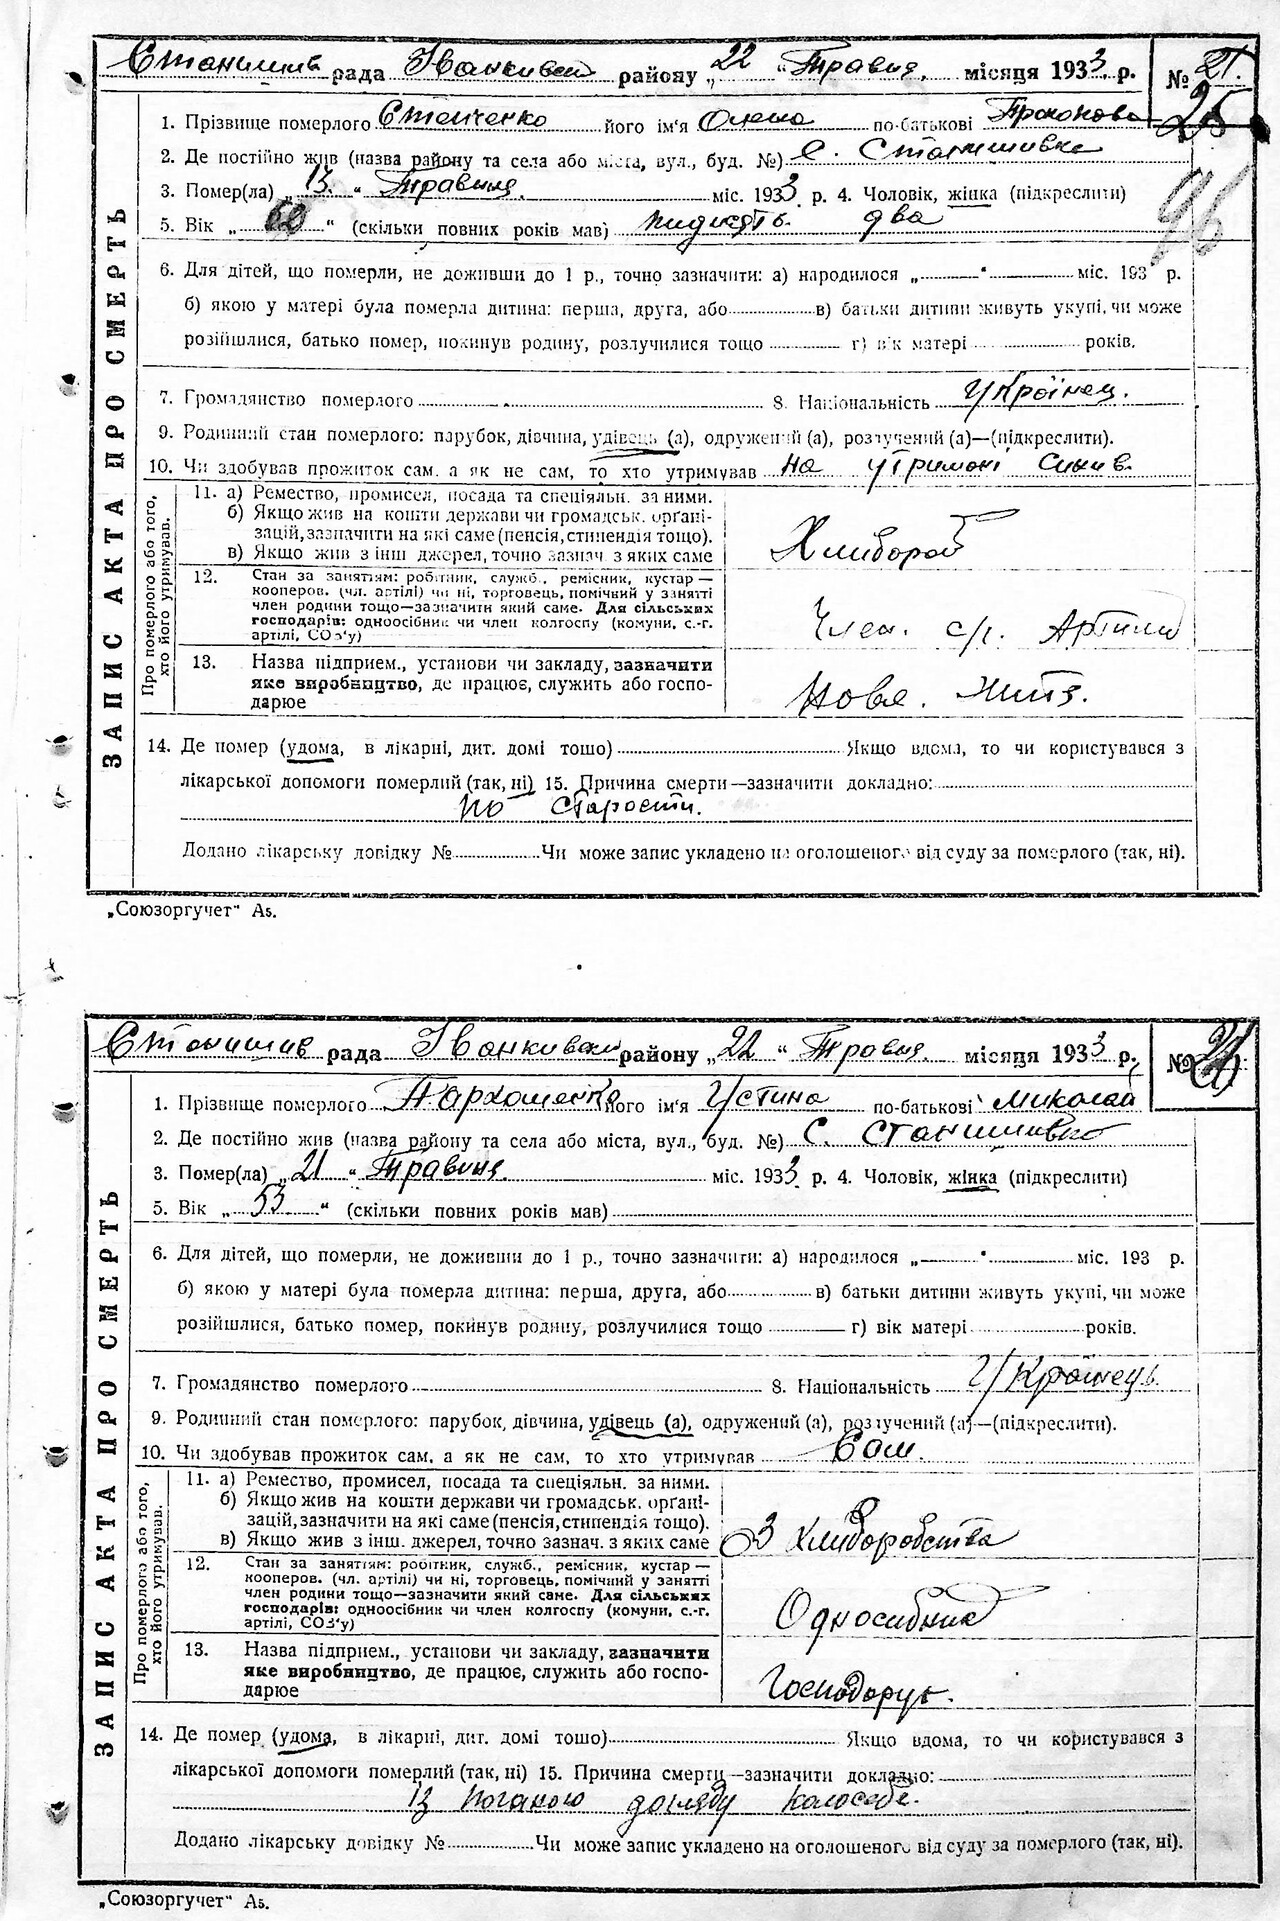 Станишив рада Іванкивськ района „22 “ Травня. місяця 1933 р. № 21.
25
96
ЗАПИС АКТА ПРО СМЕРТЬ
1. Прізвище померлого Степченко його ім'я Олена по-батькові Прохонова
2. Де постійно жив (назва району та села або міста, вул., буд. №) с. Станишивка
3. Помер(ла) „ 13. “ Травиня. міс. 1933 р. 4. Чоловік, жінка (підкреслити)
5. Вік „ “ (скільки повних років мав) два
6. Для дітей, що померли, не доживши до 1 р., точно зазначити: а) народилося „ “ міс. 193 р.
б) якою у матері була померла дитина: перша, друга, або в) батьки дитини живуть укупі, чи може
розійшлися, батько помер, покинув родину, розлучилися тощо г) вік матері років.
7. Громадянство померлого 8. Національність Украінец.
9. Родинний стан померлого: парубок, дівчина, удівець (а), одружений (а), розлучений (а)—(підкреслити).
10. Чи здобував прожиток сам. а як не сам, то хто утримував на утримоні синив.
Про померлого або того, хто його утримував.
11. а) Ремество, промисел, посада та спеціяльн. за ними.
б) Якщо жив на кошти держави чи громадськ. орґані-
зацій, зазначити на які саме (пенсія, стипендія тощо).
в) Якщо жив з інш джерел, точно зазнач. з яких саме
Хлибороб
12. Стан за занятіям: робітник, служб., ремісник, кустар —
кооперов. (чл. артілі) чи ні, торговець, помічний у занятті
член родини тощо—зазначити який саме. Для сільських
господарів: одноосібник чи член колгоспу (комуни, с.-г.
артілі, СОЗ'у)
Член. с/г. Артили
13. Назва підприєм., установи чи закладу, зазначити
яке виробництво, де працює, служить або госпо-
дарює
Нове. Житє.
14. Де помер (удома, в лікарні, дит. домі тощо) Якщо вдома, то чи користувався з
лікарської допомоги померлий (так, ні) 15. Причина смерти—зазначити докладно:
по старости.
Додано лікарську довідку № Чи може запис укладено на оголошеного від суду за померлого (так, ні).
„Союзоргучет“ А5.
Станишив рада Іванкивськ району „22 “ Травня. місяця 1933 р. №
ЗАПИС АКТА ПРО СМЕРТЬ
1. Прізвище померлого Пархоменко його ім'я Устина по-батькові Миколай
2. Де постійно жив (назва району та села або міста, вул., буд. №) С. Станишивко
3. Помер(ла) „ 21 “ Травиня. міс. 1933 р. 4. Чоловік, жінка (підкреслити)
5. Вік „ 53 “ (скільки повних років мав)
6. Для дітей, що померли, не доживши до 1 р., точно зазначити: а) народилося „ “ міс. 193 р.
б) якою у матері була померла дитина: перша, друга, або в) батьки дитини живуть укупі, чи може
розійшлися, батько помер, покинув родину, розлучилися тощо г) вік матері років.
7. Громадянство померлого 8. Національність Украінець.
9. Родинний стан померлого: парубок, дівчина, удівець (а), одружений (а), розлучений (а)—(підкреслити).
10. Чи здобував прожиток сам. а як не сам, то хто утримував Сам.
Про померлого або того, хто його утримував.
11. а) Ремество, промисел, посада та спеціяльн. за ними.
б) Якщо жив на кошти держави чи громадськ. орґані-
зацій, зазначити на які саме (пенсія, стипендія тощо).
в) Якщо жив з інш. джерел, точно зазнач. з яких саме
З хлиборобства
12. Стан за занятіям: робітник, служб., ремісник, кустар —
кооперов. (чл. артілі) чи ні, торговець, помічний у занятті
член родини тощо—зазначити який саме. Для сільських
господарів: одноосібник чи член колгоспу (комуни, с.-г.
артілі, СОЗ'у)
Односибник
13. Назва підприєм., установи чи закладу, зазначити
яке виробництво, де працює, служить або госпо-
дарює
Господорує.
14. Де помер (удома, в лікарні, дит. домі тощо) Якщо вдома, то чи користувався з
лікарської допомоги померлий (так, ні) 15. Причина смерти—зазначити докладно:
Із поганого догляду колосебе.
Додано лікарську довідку № Чи може запис укладено на оголошеного від суду за померлого (так, ні).
„Союзоргучет“ А5.